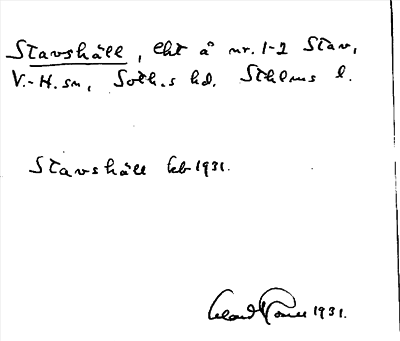 Stavshäll, lht å nr. 1-2 Stav,
V.-H. sn, Soth.s hd. Sthlms l.
Stavshäll kb 1931.
1931.